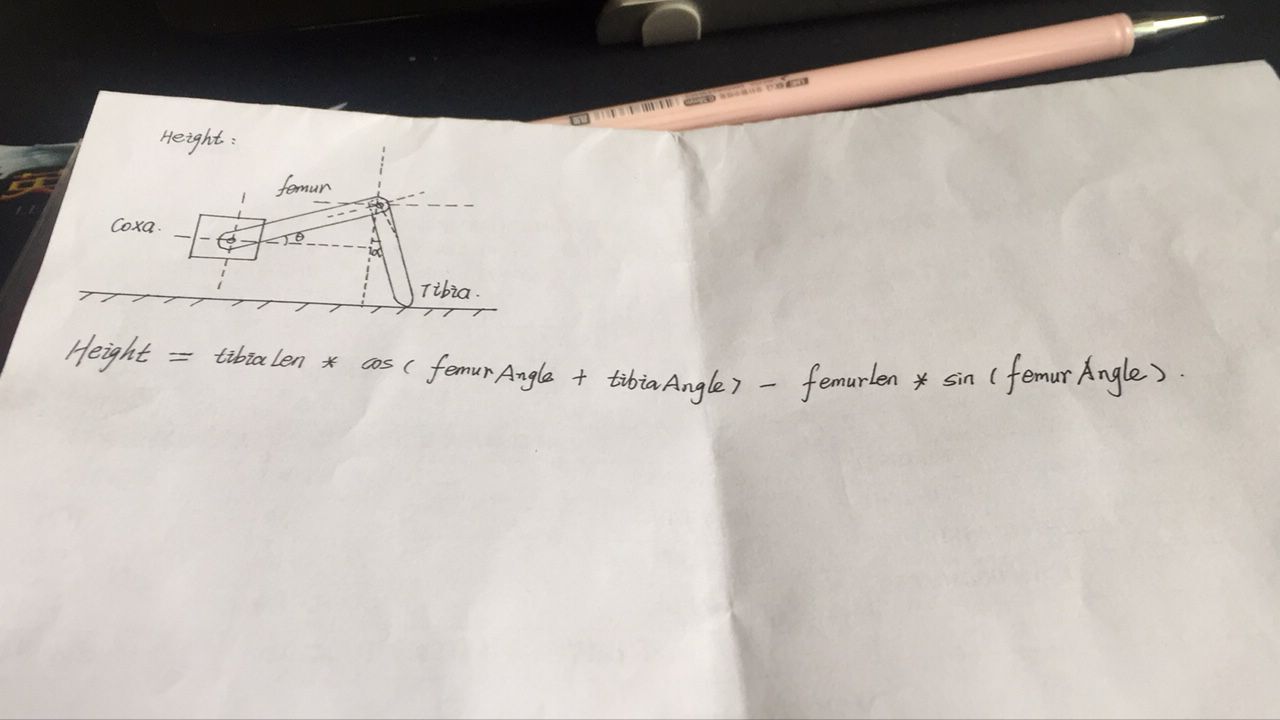 Height:
femur
Coxa.
θ
α
Tibia.
Height = tibiaLen * cos(femurAngle + tibiaAngle) - femurLen * sin(femurAngle).